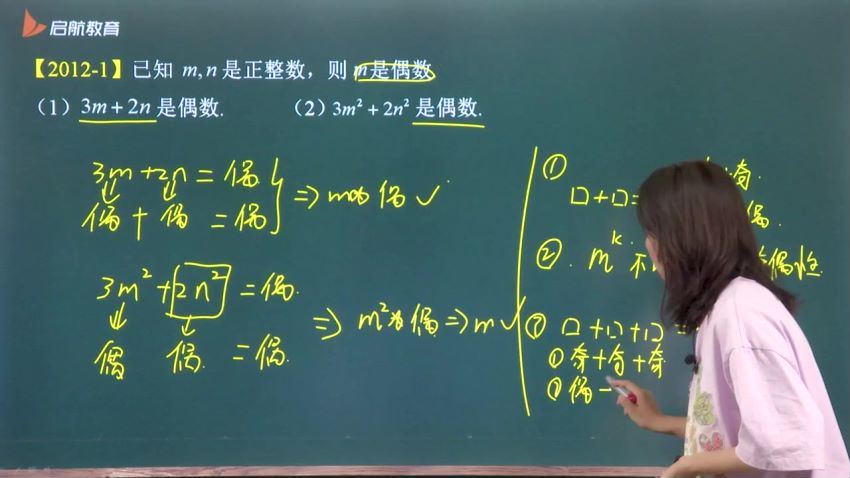 启航教育
【2012-1】已知 m,n 是正整数，则 m 是偶数
（1）3m+2n 是偶数.
（2）3m²+2n² 是偶数.
3m+2n=偶
偶+偶=偶
⇒m为偶✓
3m²+2n²=偶.
偶 偶=偶.
⇒m²为偶⇒m✓
① 奇.
□+□= 偶.
② m^k 不 偶性.
□+□+□=
①奇+奇+奇
偶